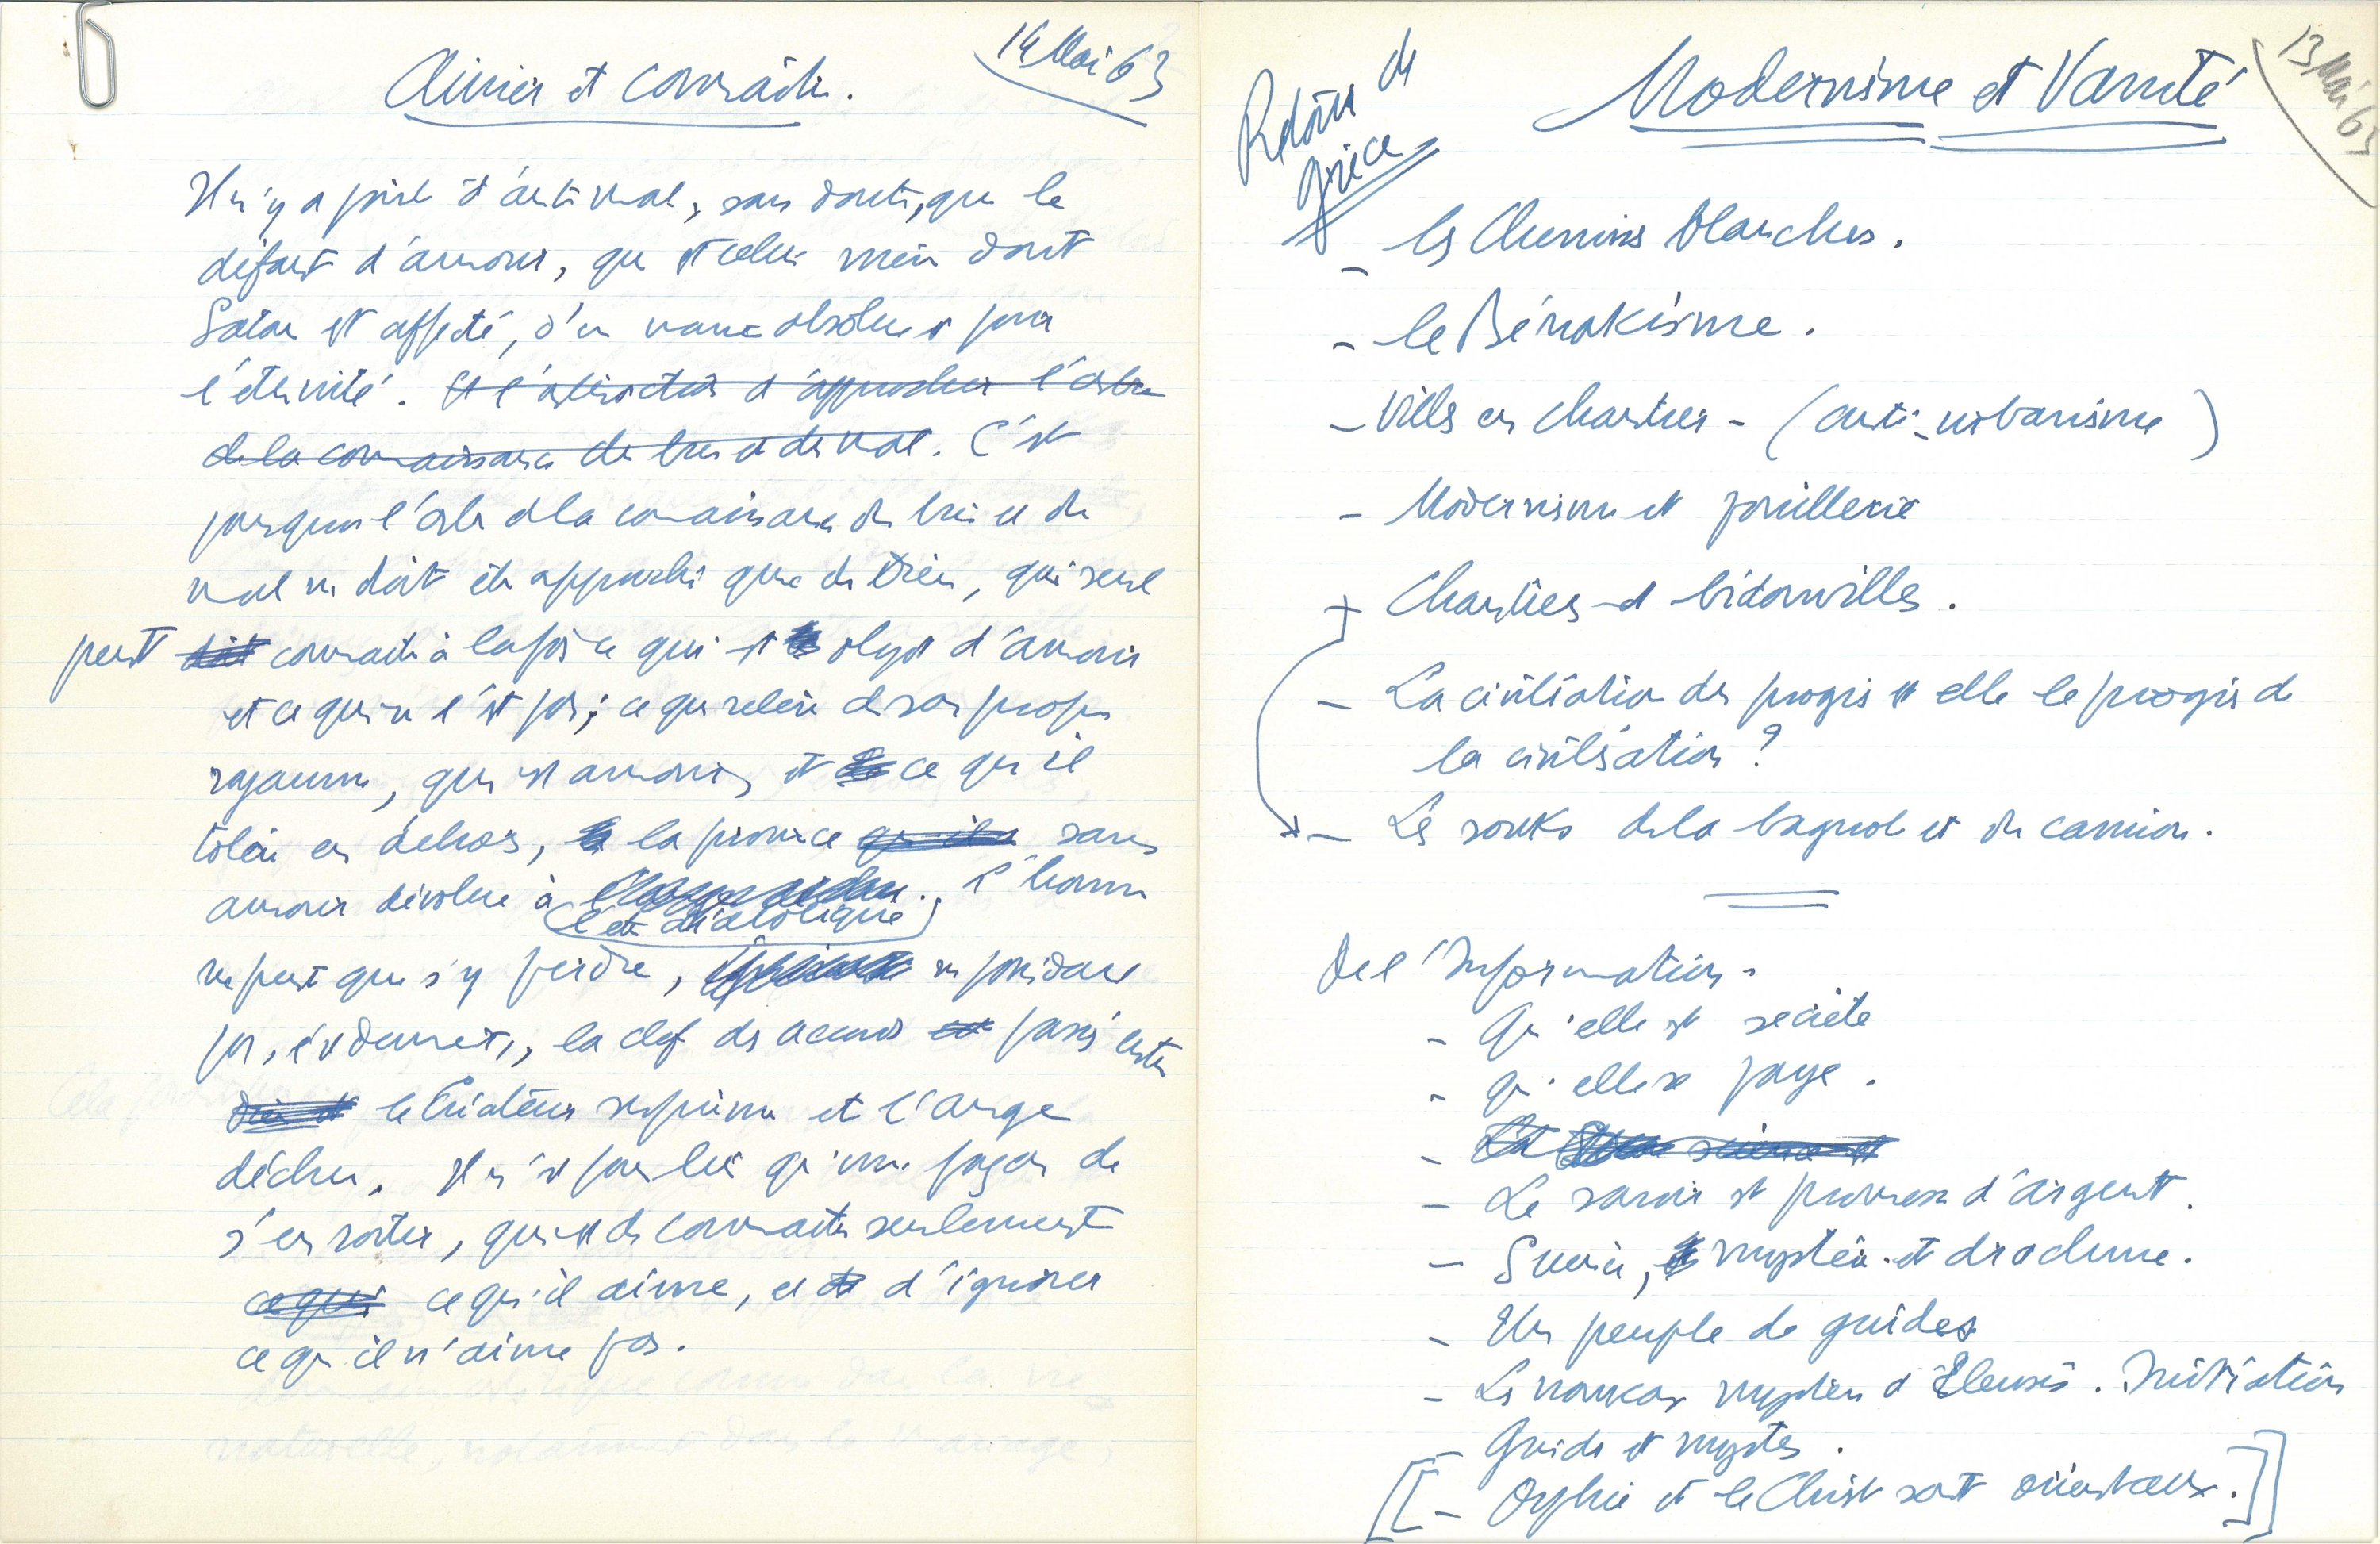 14 Mai 63
Aimer et connaître.
Il n'y a point d'autre mal, sans doute, que le
défaut d'amour, que est celui même dont
Satan est affecté, d'une manière absolue et pour
l'éternité. Et l'interdiction d'approcher l'arbre
de la connaissance du bien et du mal. C'est
pourquoi l'arbre de la connaissance du bien et du
mal ne doit être approché que de Dieu, qui seul
peut doit connaître à la fois ce qui est objet d'amour
et ce qui ne l'est pas; ce qui relève de son propre
royaume, qui est amour, et ce qu'il
tolère en dehors, la province sans
amour dévolue à l'homme
l'être diabolique
ne peut que s'y perdre, ne possédant
pas, évidemment, la clef des accords passés entre
Dieu et le Créateur suprême et l'ange
déchu. Il n'est pour lui qu'une façon de
s'en sortir, qui est de connaître seulement
ce qui ce qu'il aime, et d'ignorer
ce qu'il n'aime pas.
13 Mai 63
Retour de
Grèce
Modernisme et Vanité
- les Chemins blanches.
- le Bénakisme.
- Villes en chantier - (anti-urbanisme)
- Modernisme et pouillerie
+ Chantiers et bidonvilles.
- La civilisation du progrès est elle le progrès de
la civilisation ?
- Les souks de la bagnole et du camion.
De l'Information.
- Qu'elle est secrète
- qu'elle se paye.
- science et
- Le savoir est promesse d'argent.
- Savoir, mystère et drachme.
- Un peuple de guides
- Les nouveaux mystères d'Eleusis. Initiation
- Guide et mystes.
[[- Orphée et le Christ sont orientaux.]]